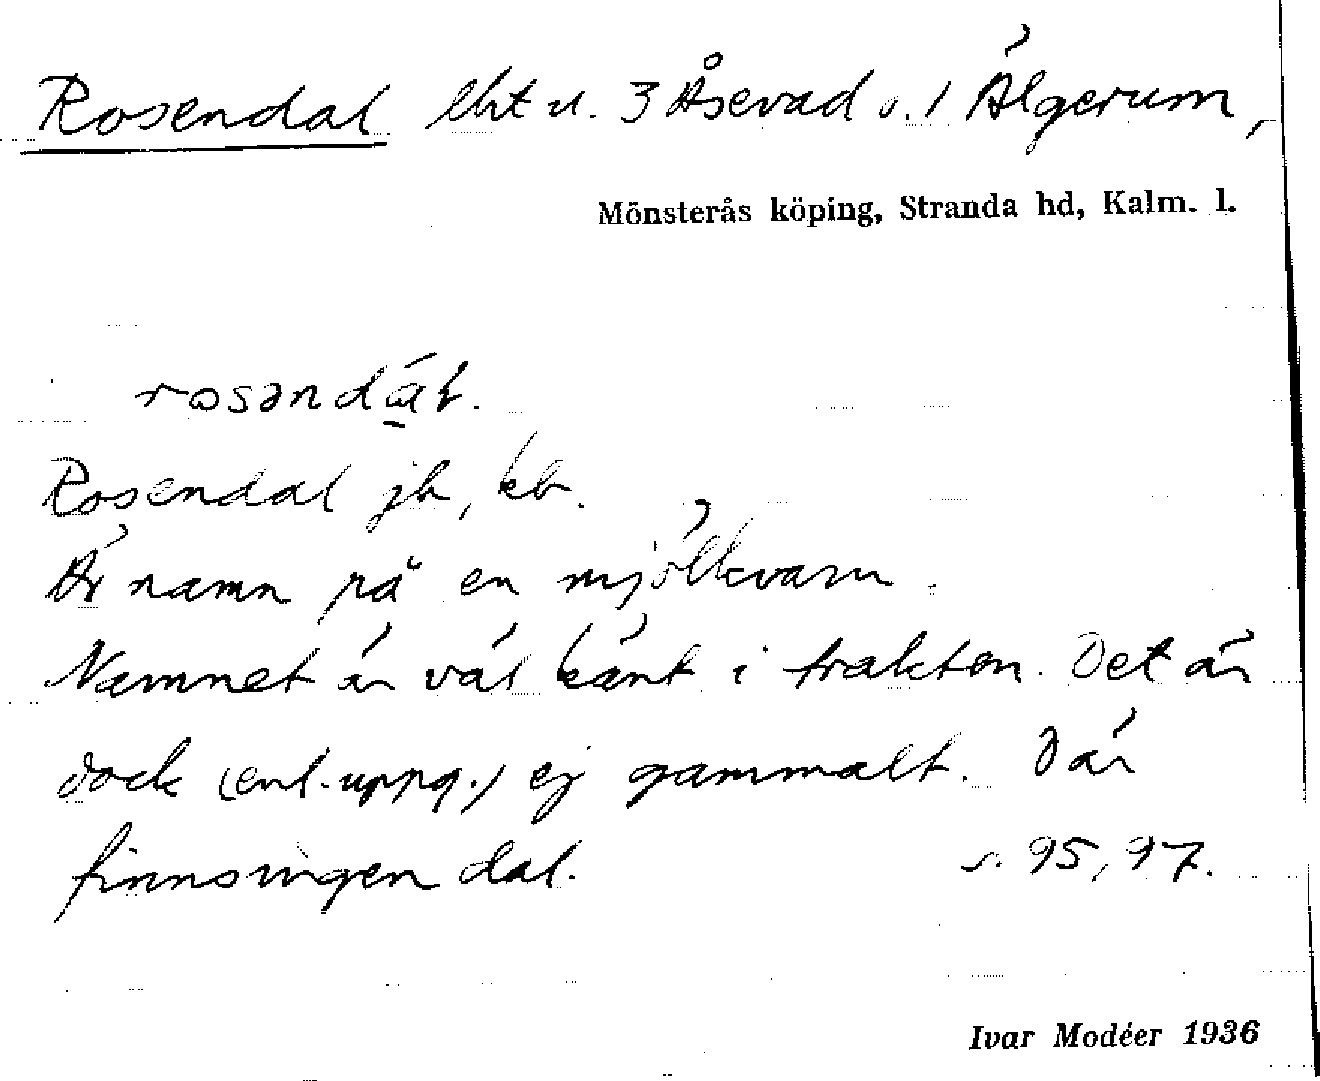 Rosendal lht u. 3 Åsevad o. 1 Älgerum,
Mönsterås köping, Stranda hd, Kalm. l.
rosəndát.
Rosendal jb, kb.
Är namn på en mjölkvarn.
Namnet är väl känt i trakten. Det är
dock (enl. uppg.) ej gammalt. Där
finns ingen dal. s. 95, 97.
Ivar Modéer 1936